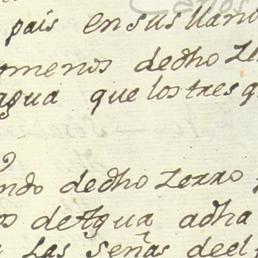 pais en sus llano
menos dedho Zer
agua que los tres
ndo dedho Zerro
os de Agua, adha
Las Señas de el